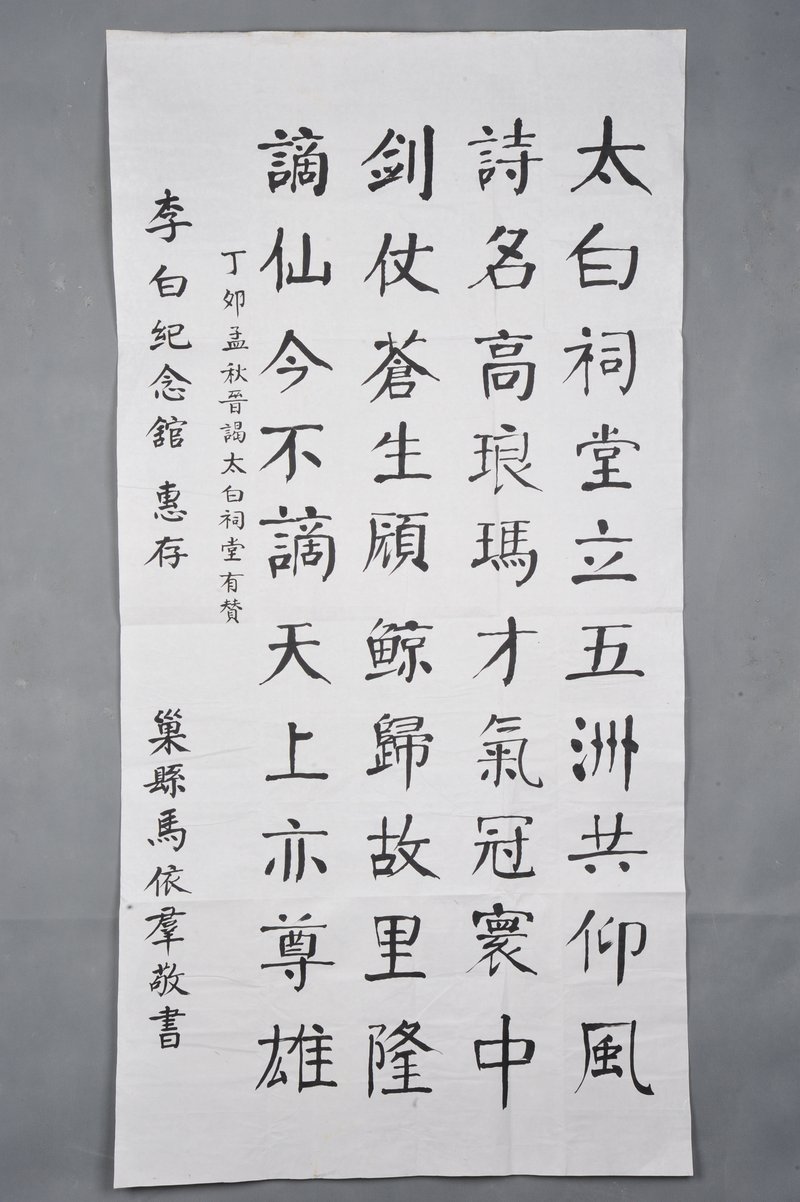 太白祠堂立五洲共仰風
詩名高琅瑪才氣冠寰中
剑仗蒼生顾鲸歸故里隆
謫仙今不謫天上亦尊雄
丁卯孟秋晉謁太白祠堂有賛
李白纪念舘惠存
巢縣馬依羣敬書